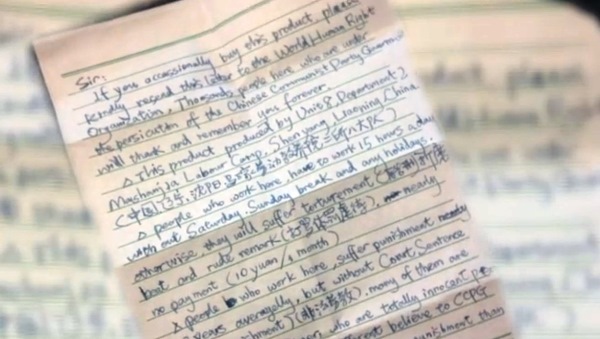 Sir:
If you occassionally buy this product, please
kindly resend this letter to the World Human Right
Organization. Thousands people here who are under
the persicution of the Chinese Communist Party Government
will thank and remember you forever.
This product produced by Unit 8, Department 2
Mashanjia Labour Camp, Shenyang, Liaoning, China
(中国,辽宁,沈阳,马三家劳动教养院二所八大队)
people who work here, have to work 15 hours a day
with out Saturday, Sunday break and any holidays,
otherwise, they will suffer torturement
beat and rude remark nearly
no payment (10 yuan/1 month)
people who work here, suffer punishment nearly
years averagelly, but without Court Sentence
many of them are
who are totally innocent
believe to CCPG
punishment than